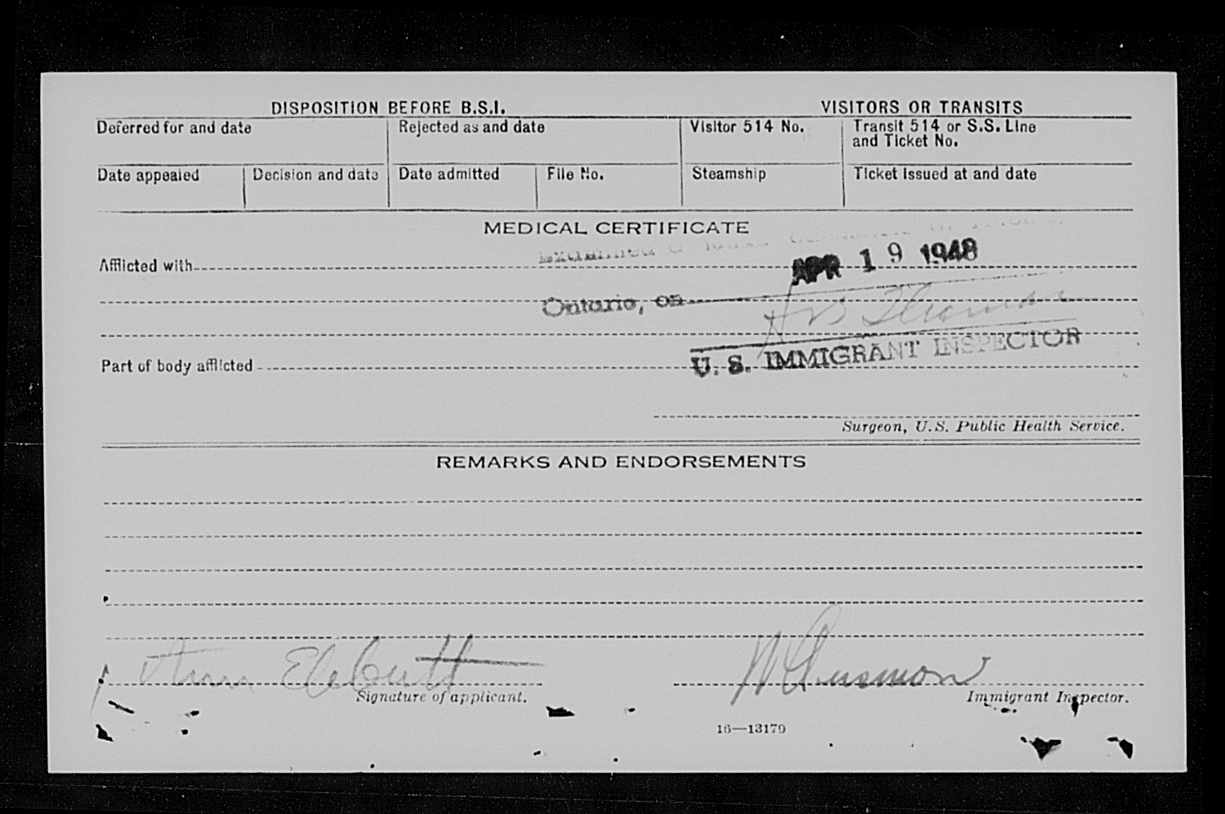 DISPOSITION BEFORE B.S.I. VISITORS OR TRANSITS
Deferred for and date Rejected as and date Visitor 514 No. Transit 514 or S.S. Line
and Ticket No.
Date appealed Decision and date Date admitted File No. Steamship Ticket issued at and date
MEDICAL CERTIFICATE
Examined
Afflicted with APR 19 1948
Ontario, on
U. S. IMMIGRANT INSPECTOR
Part of body afflicted
Surgeon, U.S. Public Health Service.
REMARKS AND ENDORSEMENTS
Signature of applicant. Immigrant Inspector.
16—13179